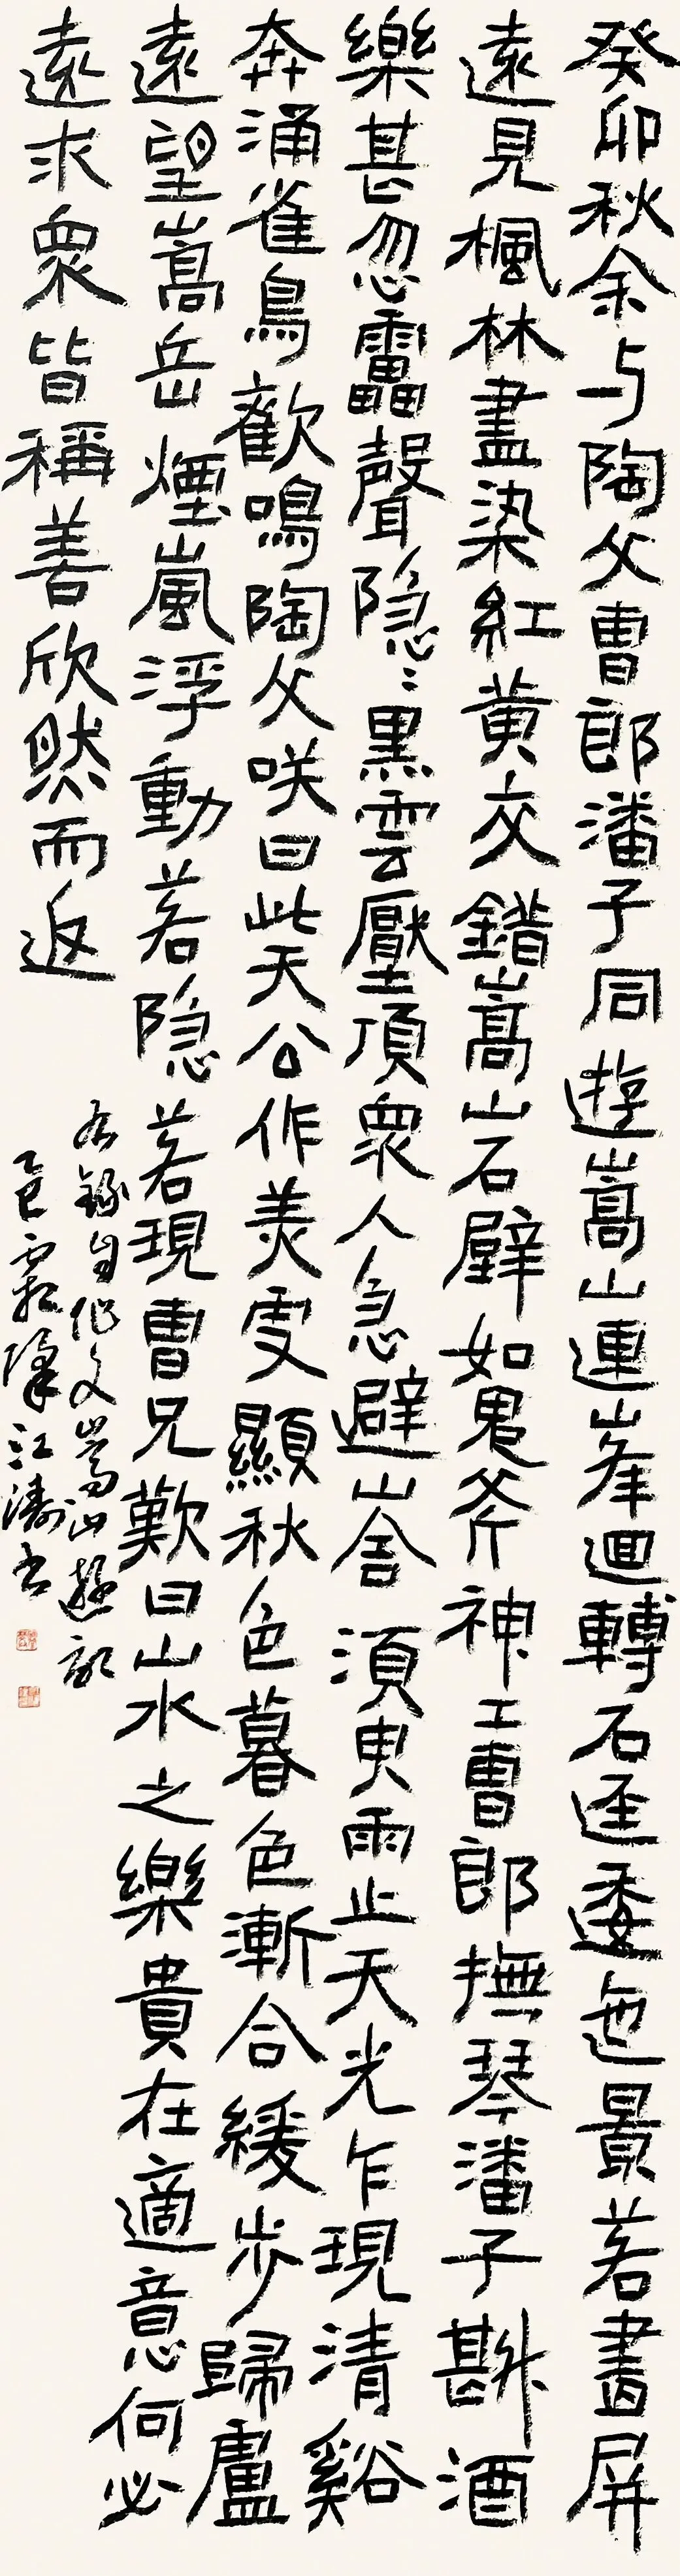 癸卯秋余与陶父曹郎潘子同遊嵩山連峯迴轉石逕逶迤景若畫屏
遠見楓林盡染紅黄交錯嵩山石壁如鬼斧神工曹郎撫琴潘子斟酒
樂甚忽靁聲隐〻黒雲壓頂衆人急避山舍須臾雨止天光乍現清谿
奔涌雀鳥歡鳴陶父咲曰此天公作美雯顯秋色暮色漸合緩步歸廬
遠望嵩岳煙嵐浮動若隐若現曹兄歎曰山水之樂貴在適意何必
遠求衆皆稱善欣然而返
右錄自作文嵩山遊記
乙巳霜降江濤书